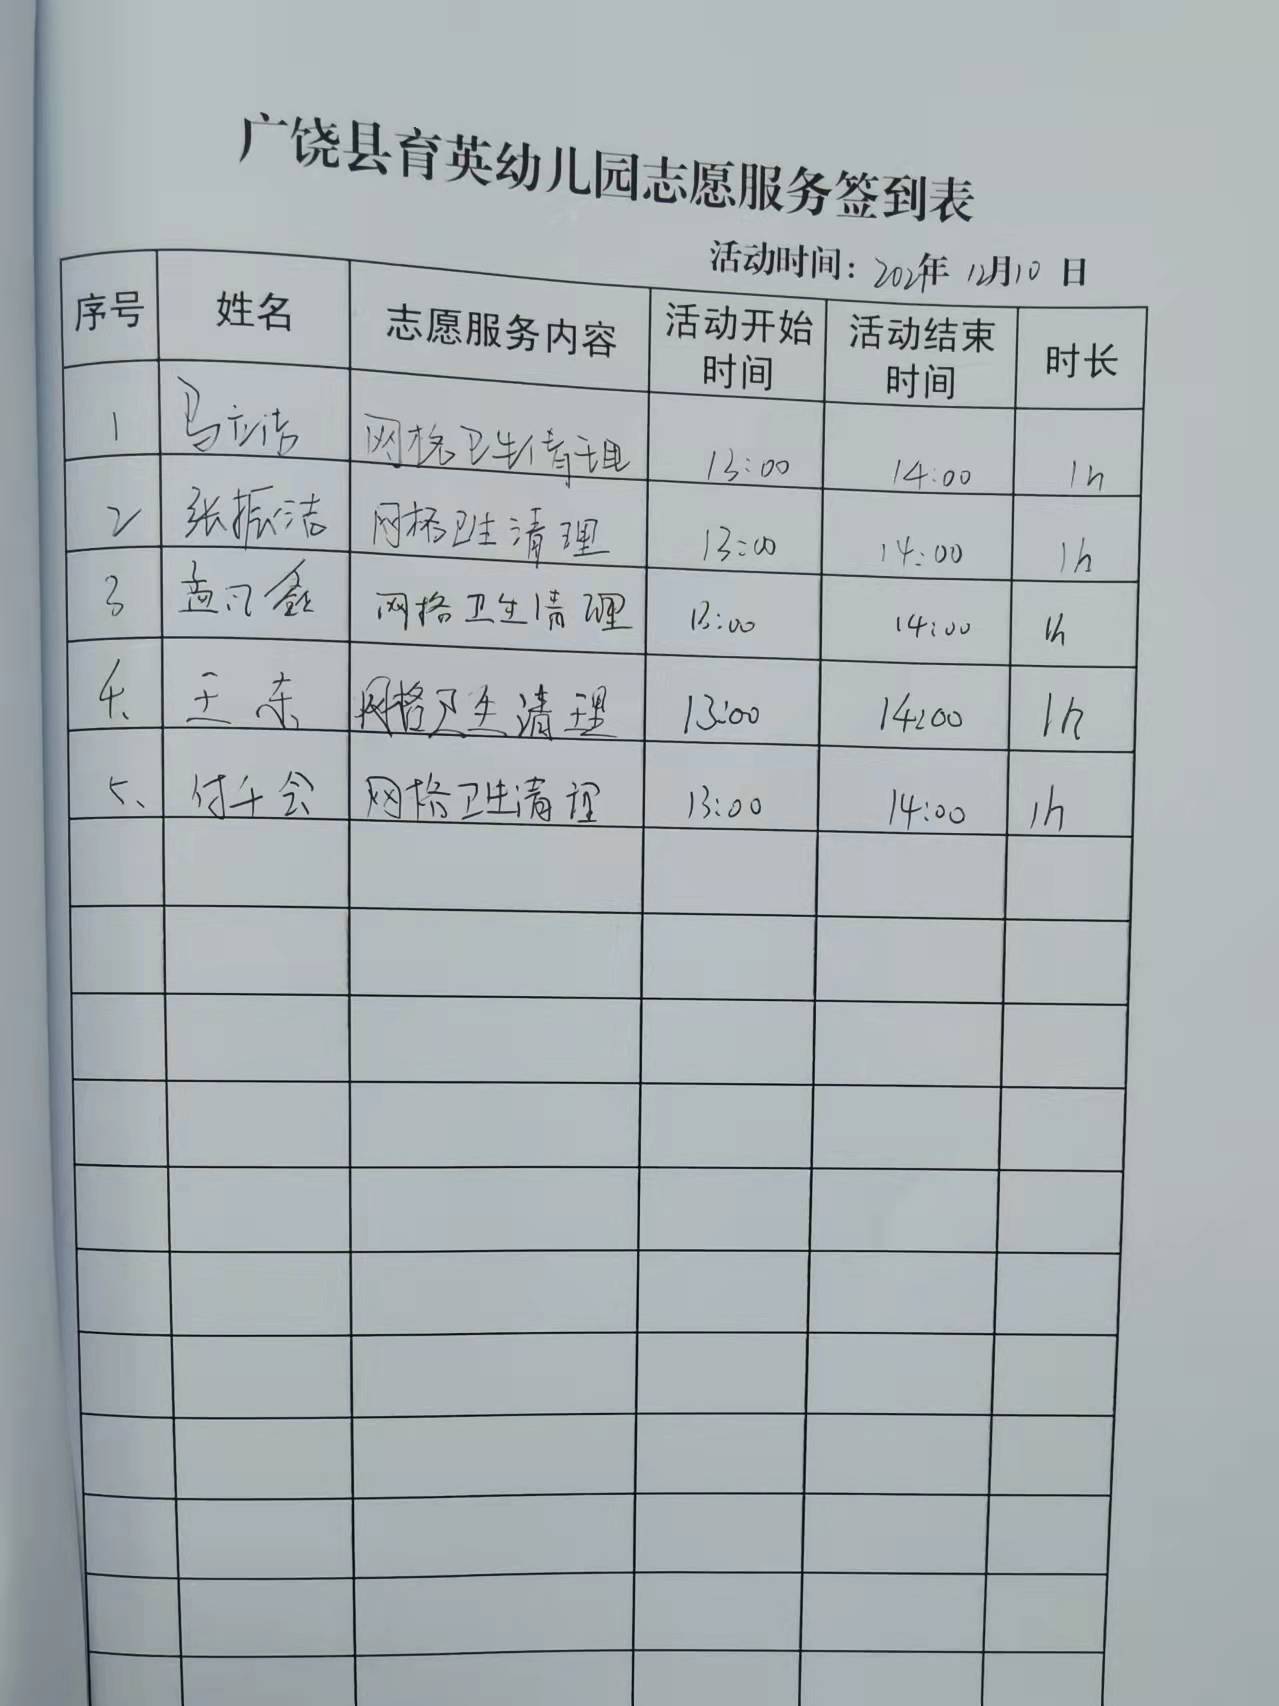 广饶县育英幼儿园志愿服务签到表
活动时间： 年 12月10 日
序号 姓名 志愿服务内容 活动开始时间 活动结束时间 时长
1 马 洁 网格卫生清理 13:00 14:00 1h
2 张振洁 网格卫生清理 13:00 14:00 1h
3 孟 鑫 网格卫生清理 13:00 14:00 1h
4、 王东 网格卫生清理 13:00 14:00 1h
5、 付 会 网格卫生清理 13:00 14:00 1h